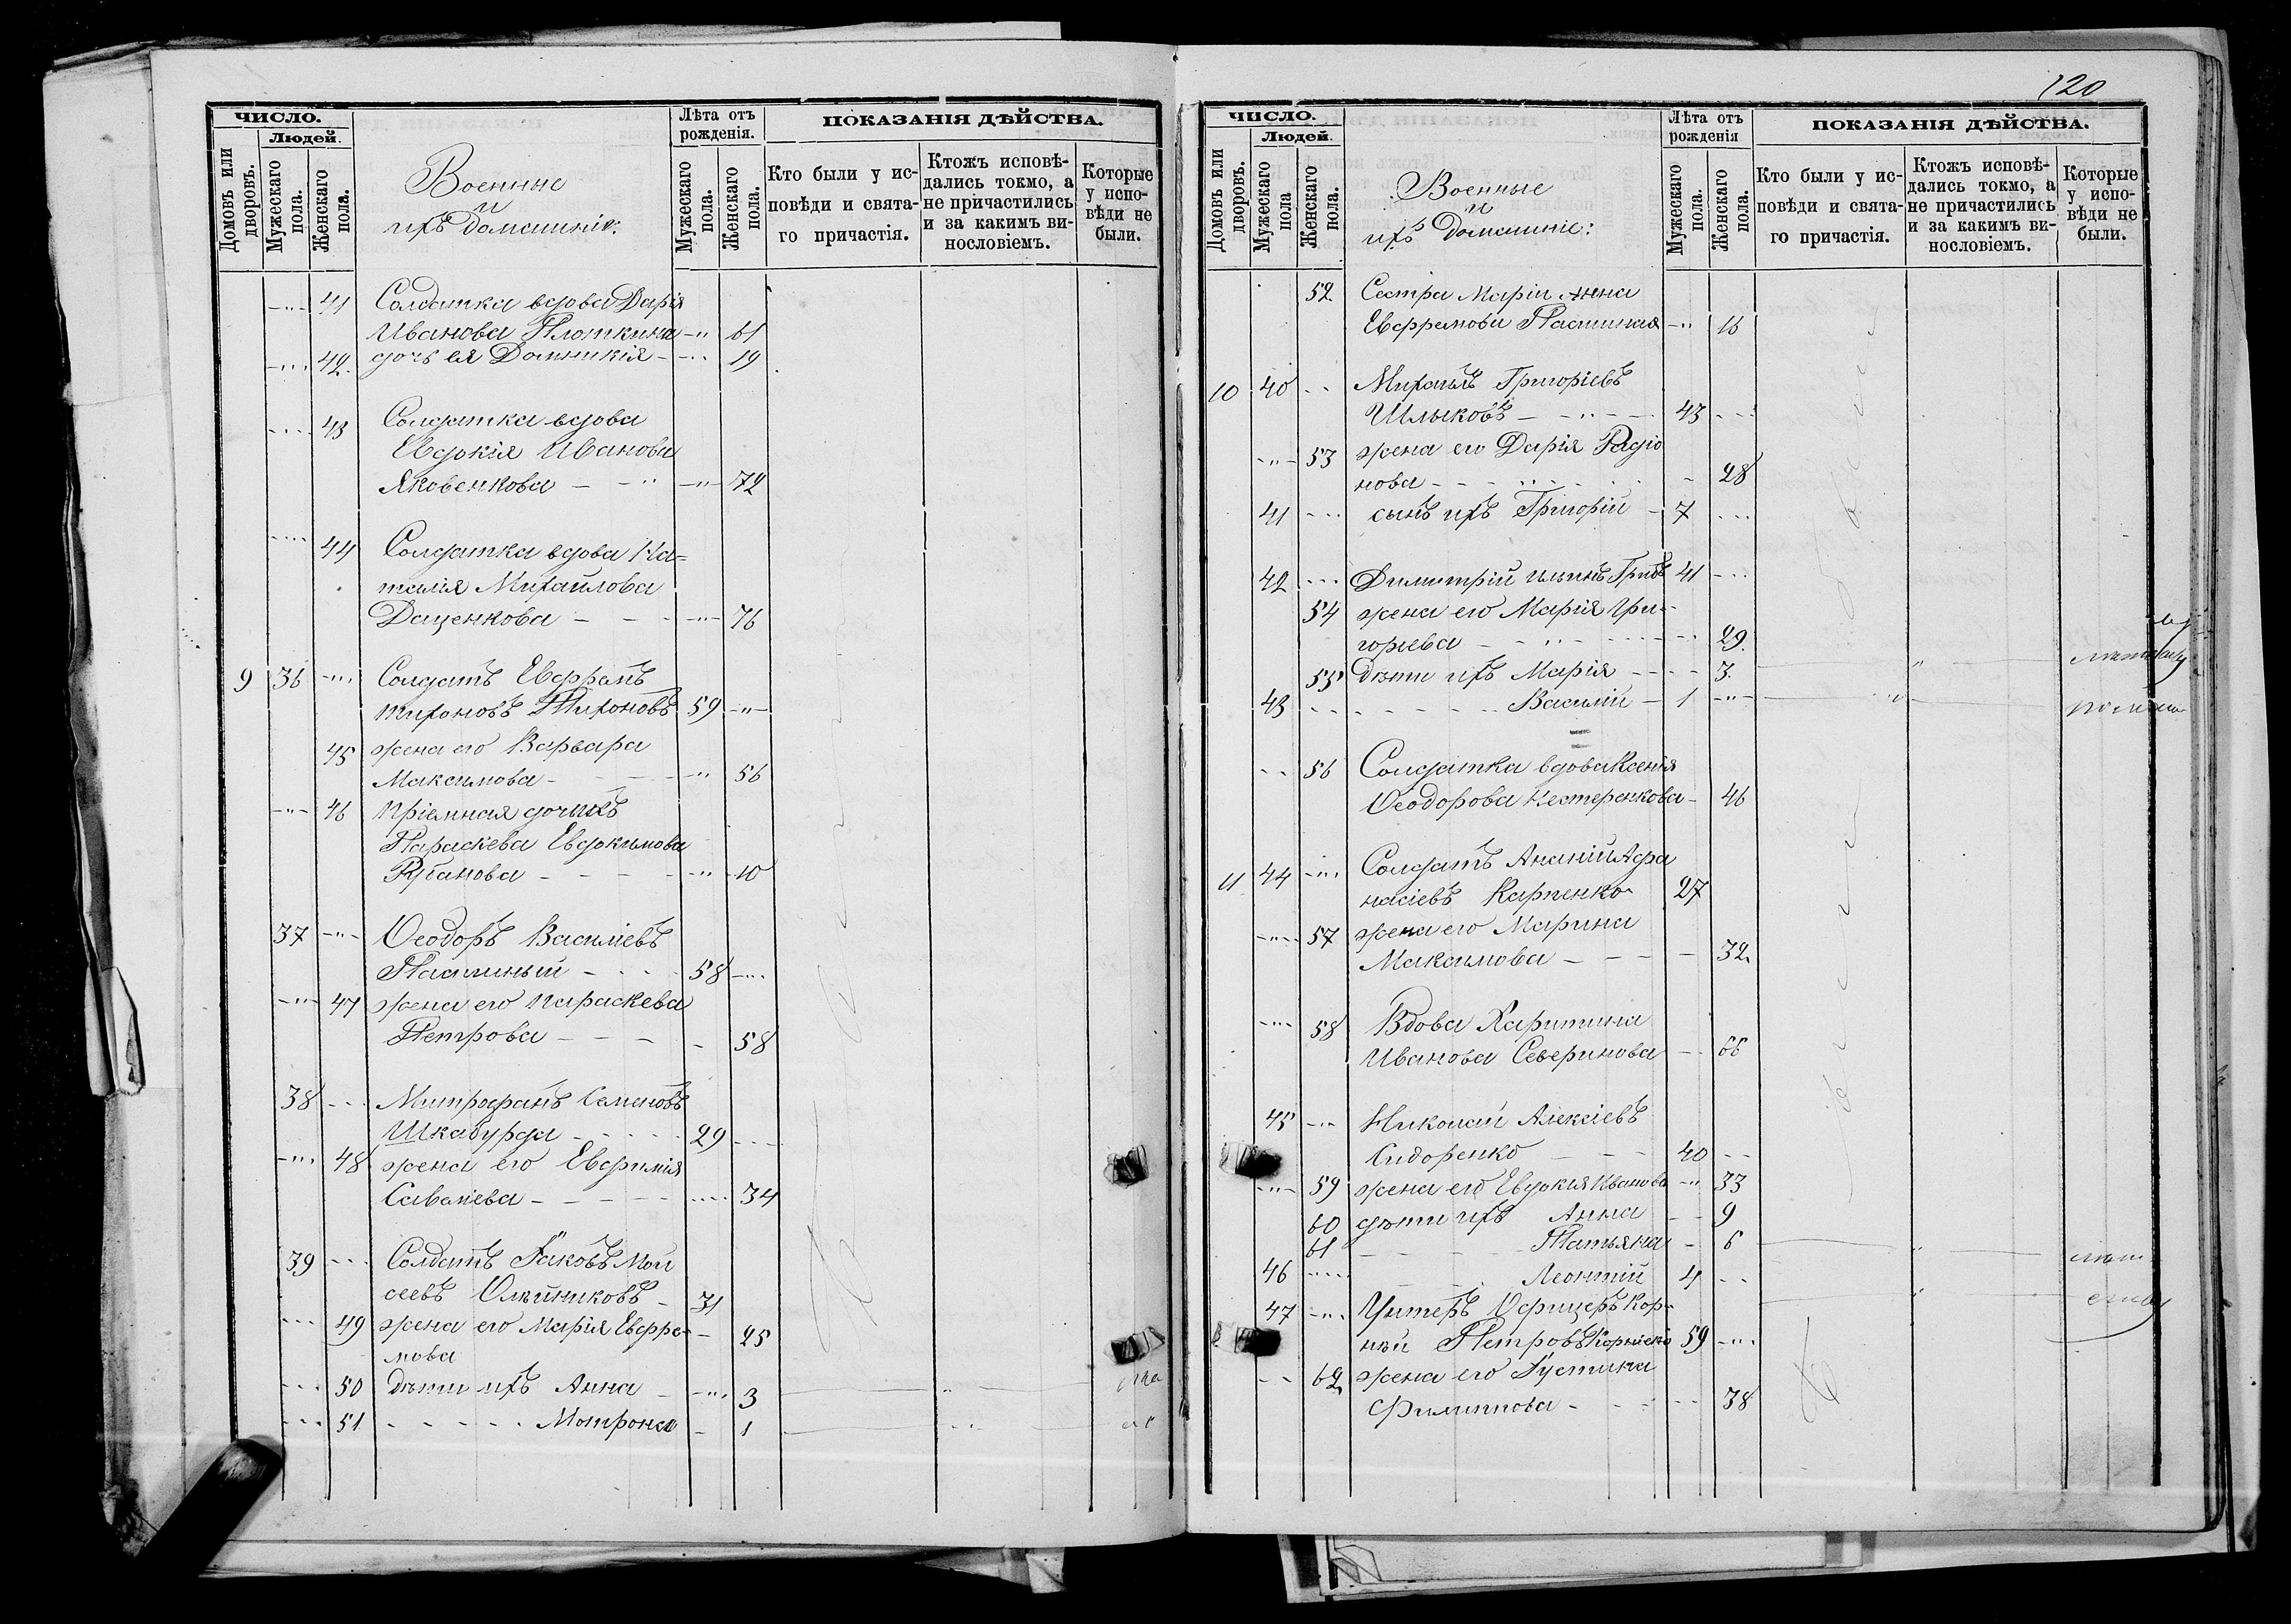 ЧИСЛО.
Людей.
Домовъ или дворовъ.
Мужескаго пола.
Женскаго пола.
Военные
и
ихъ домашніе:
Лѣта отъ
рожденія.
Мужескаго пола.
Женскаго пола.
ПОКАЗАНІЯ ДѢЙСТВА.
Кто были у ис-
повѣди и свята-
го причастія.
Ктожъ исповѣ-
дались токмо, а
не причастились
и за какимъ ви-
нословіемъ.
Которые
у испо-
вѣди не
были.
41 Солдатка вдова Дарія
Иванова Плоткина 61
42. дочь ея Домникія 19
43 Солдатка вдова
Евдокія Иванова
Яковенкова 72
44 Солдатка вдова На=
талія Михайлова
Даценкова 76
9 36 Солдатъ Евфрамъ
Тихоновъ Тихоновъ 59
45 жена его Варвара
Максимова 56
46 пріемная дочь ихъ
Параскева Евдокимова
Рубанова 10
37 Ѳеодоръ Василіевъ
58
47 жена его Параскева
Петрова 58
38 Митрофанъ Семеновъ
Шкабурда 29
48 жена его Евфимія
Саватіева 34
39 Солдатъ Іаковъ Мои
сеевъ Олейниковъ 31
49 жена его Марія Евфре- 25
мова
50 Дѣти ихъ Анна 3
51 Мотрона 1
120
ЧИСЛО.
Людей.
Домовъ или дворовъ.
Мужескаго пола
Женскаго пола.
Военные
и
ихъ домашніе:
Лѣта отъ
рожденія
Мужескаго пола.
Женскаго пола.
ПОКАЗАНІЯ ДѢЙСТВА.
Кто были у ис-
повѣди и свята-
го причастія.
Ктожъ исповѣ-
дались токмо, а
не причастились
и за какимъ ви-
нословіемъ.
Которые
у испо-
вѣди не
были.
52 Сестра Маріи Анна
Евфремова 16
10 40 Михаилъ Григоріевъ
Шлыковъ 43
53 жена его Дарія Радіо
нова 28
41 сынъ ихъ Григорій 7
42 Димитрій Ильинъ 41
54 жена его Марія Гри-
горіева 29.
55 Дѣти ихъ Марія 3.
43 Василій 1
56 Солдатка вдова Ксенія
Ѳеодорова Нестеренкова 46
11 44 Солдатъ Ананій Афа
насіевъ Карпенко 27
57 жена его Марина
Максимова 32
58 Вдова Харитина
Иванова Северинова 66
45 Николай Алексіевъ
Сидоренко 40
59 жена его Евдокія Иванова 33
60 дѣти ихъ Анна 9
61 Татьяна 6
46 Леонтій 4
47 Унтеръ Офицеръ Кор-
ній Петровъ Корніенко 59
62 жена его Іустина
Филиппова 38